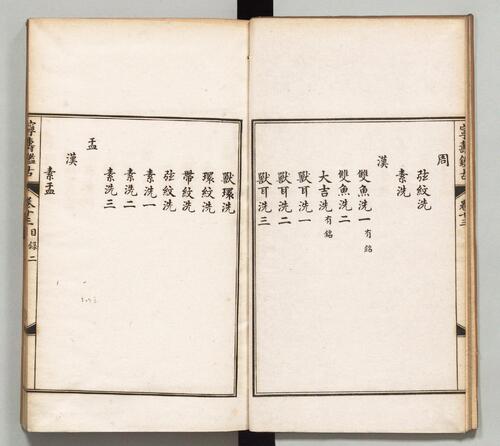 寧壽鑑古
卷十三
周
弦紋洗
素洗
漢
雙魚洗一有銘
雙魚洗二
大吉洗有銘
獸耳洗一
獸耳洗二
獸耳洗三
獸環洗
環紋洗
帶紋洗
弦紋洗
素洗一
素洗二
素洗三
盂
漢
素盂
寧壽鑑古
卷十三目錄 二